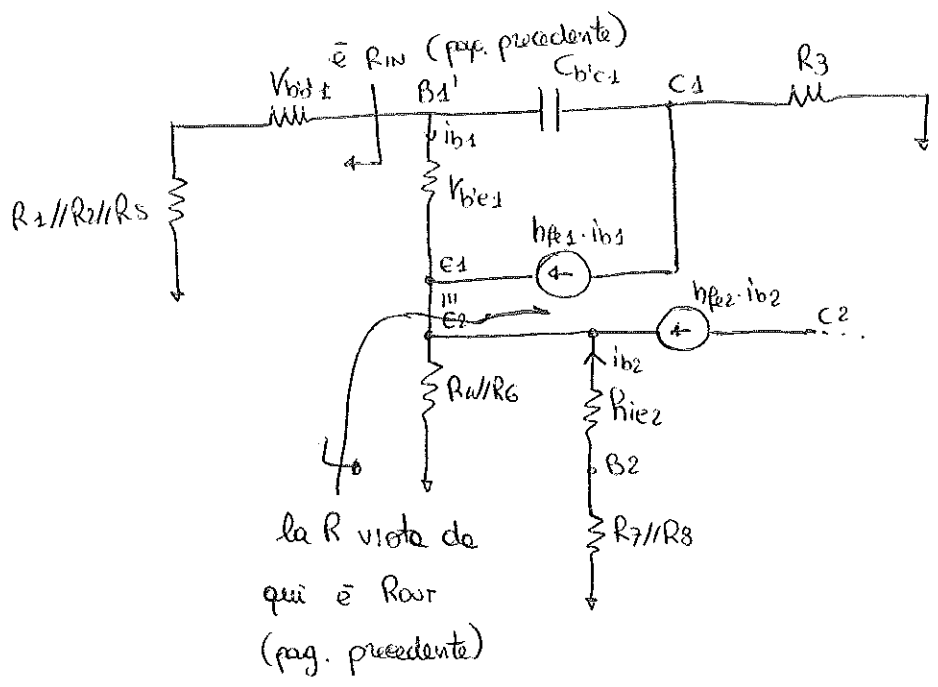 è RIN (pag. precedente)
rbb'1
B1'
Cb'c1
C1
R3
ib1
R1//R2//RS
rb'e1
hfe1·ib1
E1
'''
E2
hfe2·ib2
C2
ib2
R4//R6
hie2
B2
R7//R8
la R vista da
qui è ROUT
(pag. precedente)